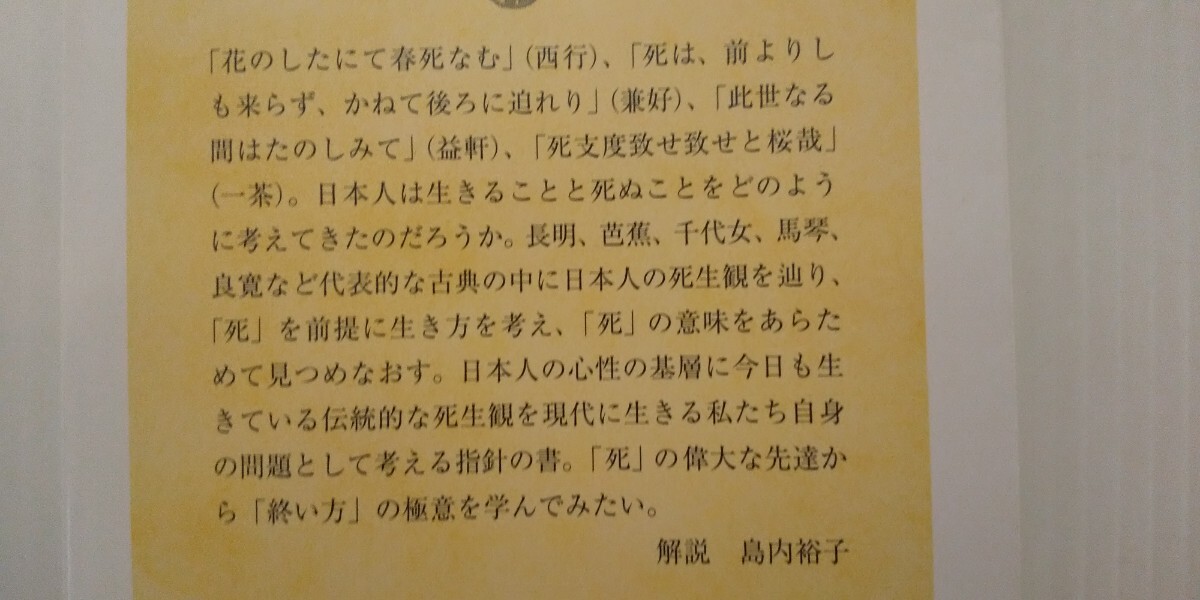 「花のしたにて春死なむ」(西行)、「死は、前よりし
も来らず、かねて後ろに迫れり」(兼好)、「此世なる
間はたのしみて」(益軒)、「死支度致せ致せと桜哉」
(一茶)。日本人は生きることと死ぬことをどのよう
に考えてきたのだろうか。長明、芭蕉、千代女、馬琴、
良寛など代表的な古典の中に日本人の死生観を辿り、
「死」を前提に生き方を考え、「死」の意味をあらた
めて見つめなおす。日本人の心性の基層に今日も生
きている伝統的な死生観を現代に生きる私たち自身
の問題として考える指針の書。「死」の偉大な先達か
ら「終い方」の極意を学んでみたい。
解説　島内裕子